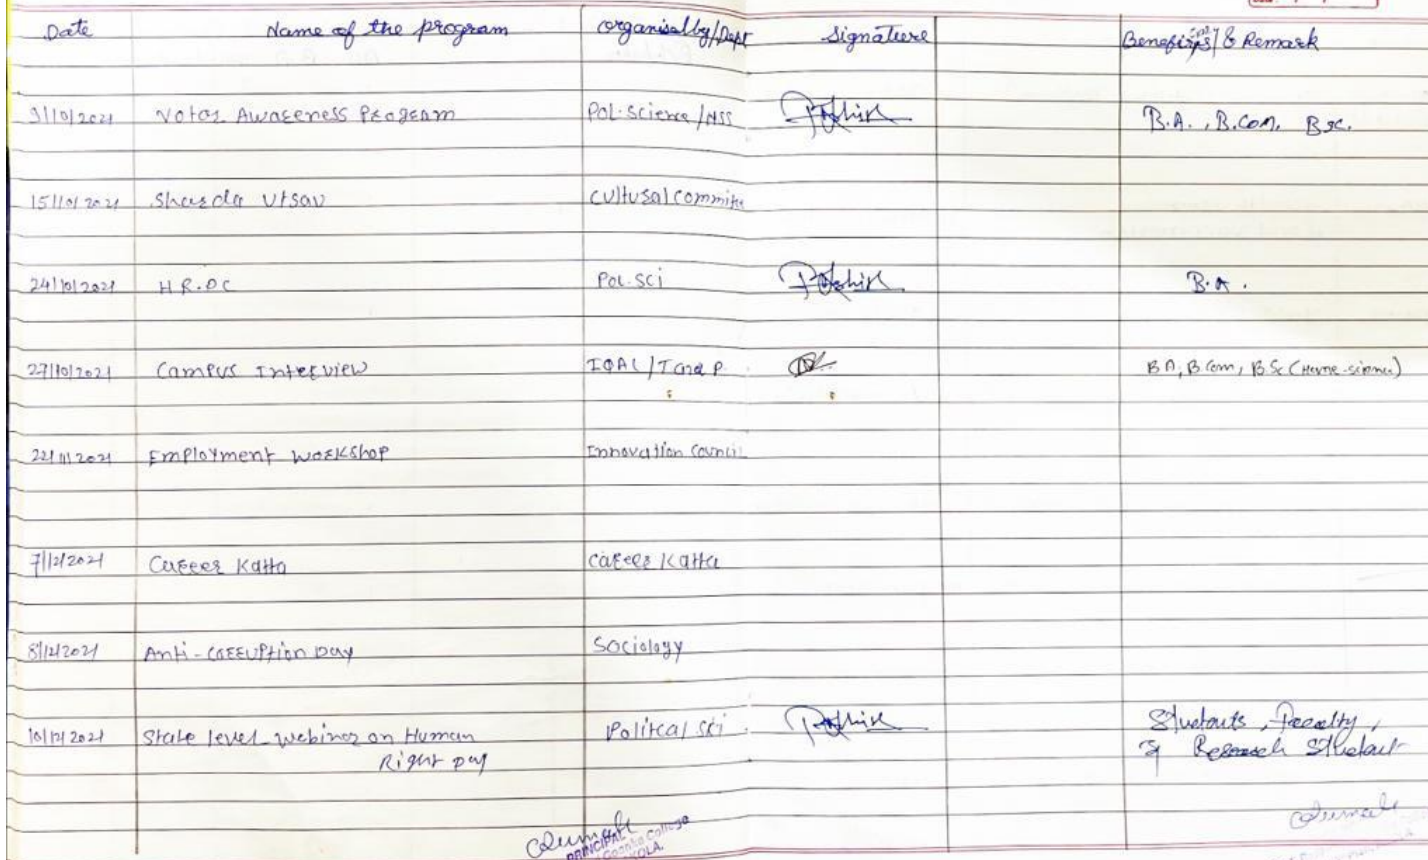 Date Name of the program organised by/Dept Signature Benefits / & Remark
9/10/2021 Votar Awareness Program Pol. Science / NSS B.A., B.Com, Bsc.
15/10/2021 Sharda Utsav Cultural Committe
24/10/2021 H R.DC Pol. Sci B.A.
27/10/2021 Campus Interview IQAC / T and P. BA, B.Com, B.Sc (Home-science)
22/11/2021 Employment Workshop Innovation Council
7/12/2021 Career Katta Career Katta
8/12/2021 Anti-Corruption Day Sociology
10/12/2021 State level webinar on Human Political Sci. Students, Faculty,
Right Day & Research Student
PRINCIPAL
College